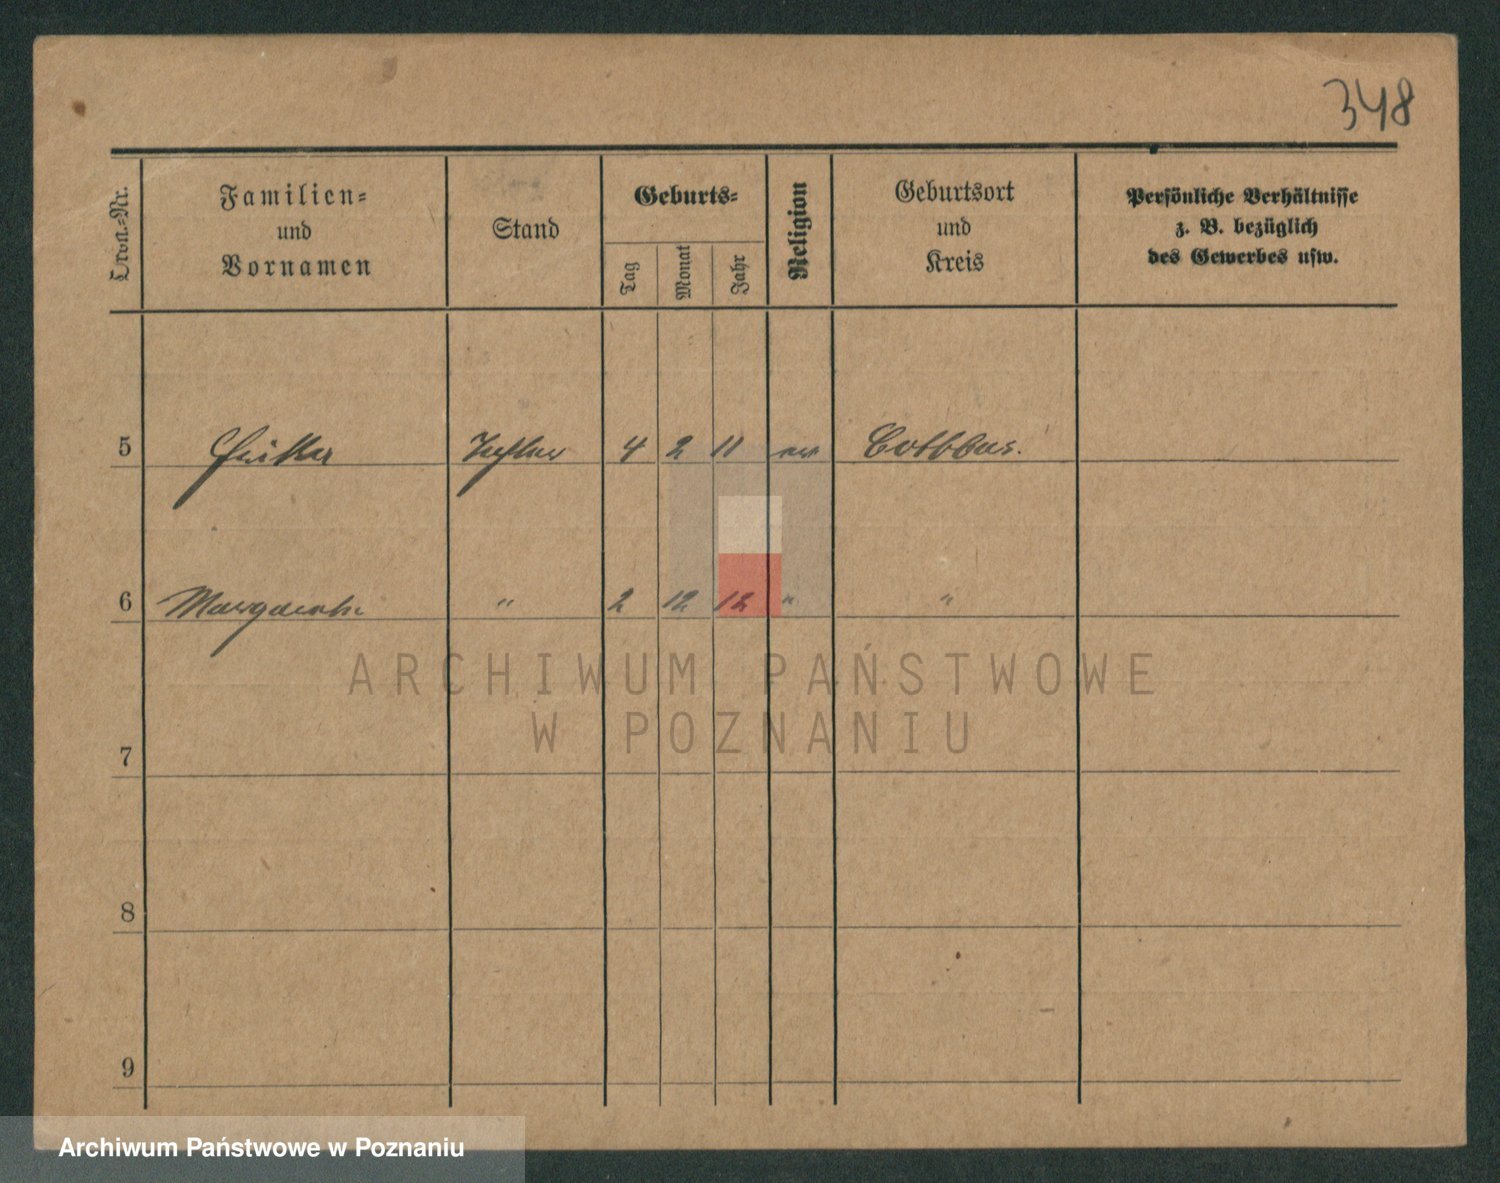 348
Ordn.-Nr.
Familien-
und
Vornamen
Stand
Geburts-
Tag
Monat
Jahr
Religion
Geburtsort
und
Kreis
Persönliche Verhältnisse
z. B. bezüglich
des Gewerbes usw.
5 Tochter 4 2 11 ev Cottbus.
6 Margarethe " 2 12 12 " "
ARCHIWUM PAŃSTWOWE
W POZNANIU
7
8
9
Archiwum Państwowe w Poznaniu